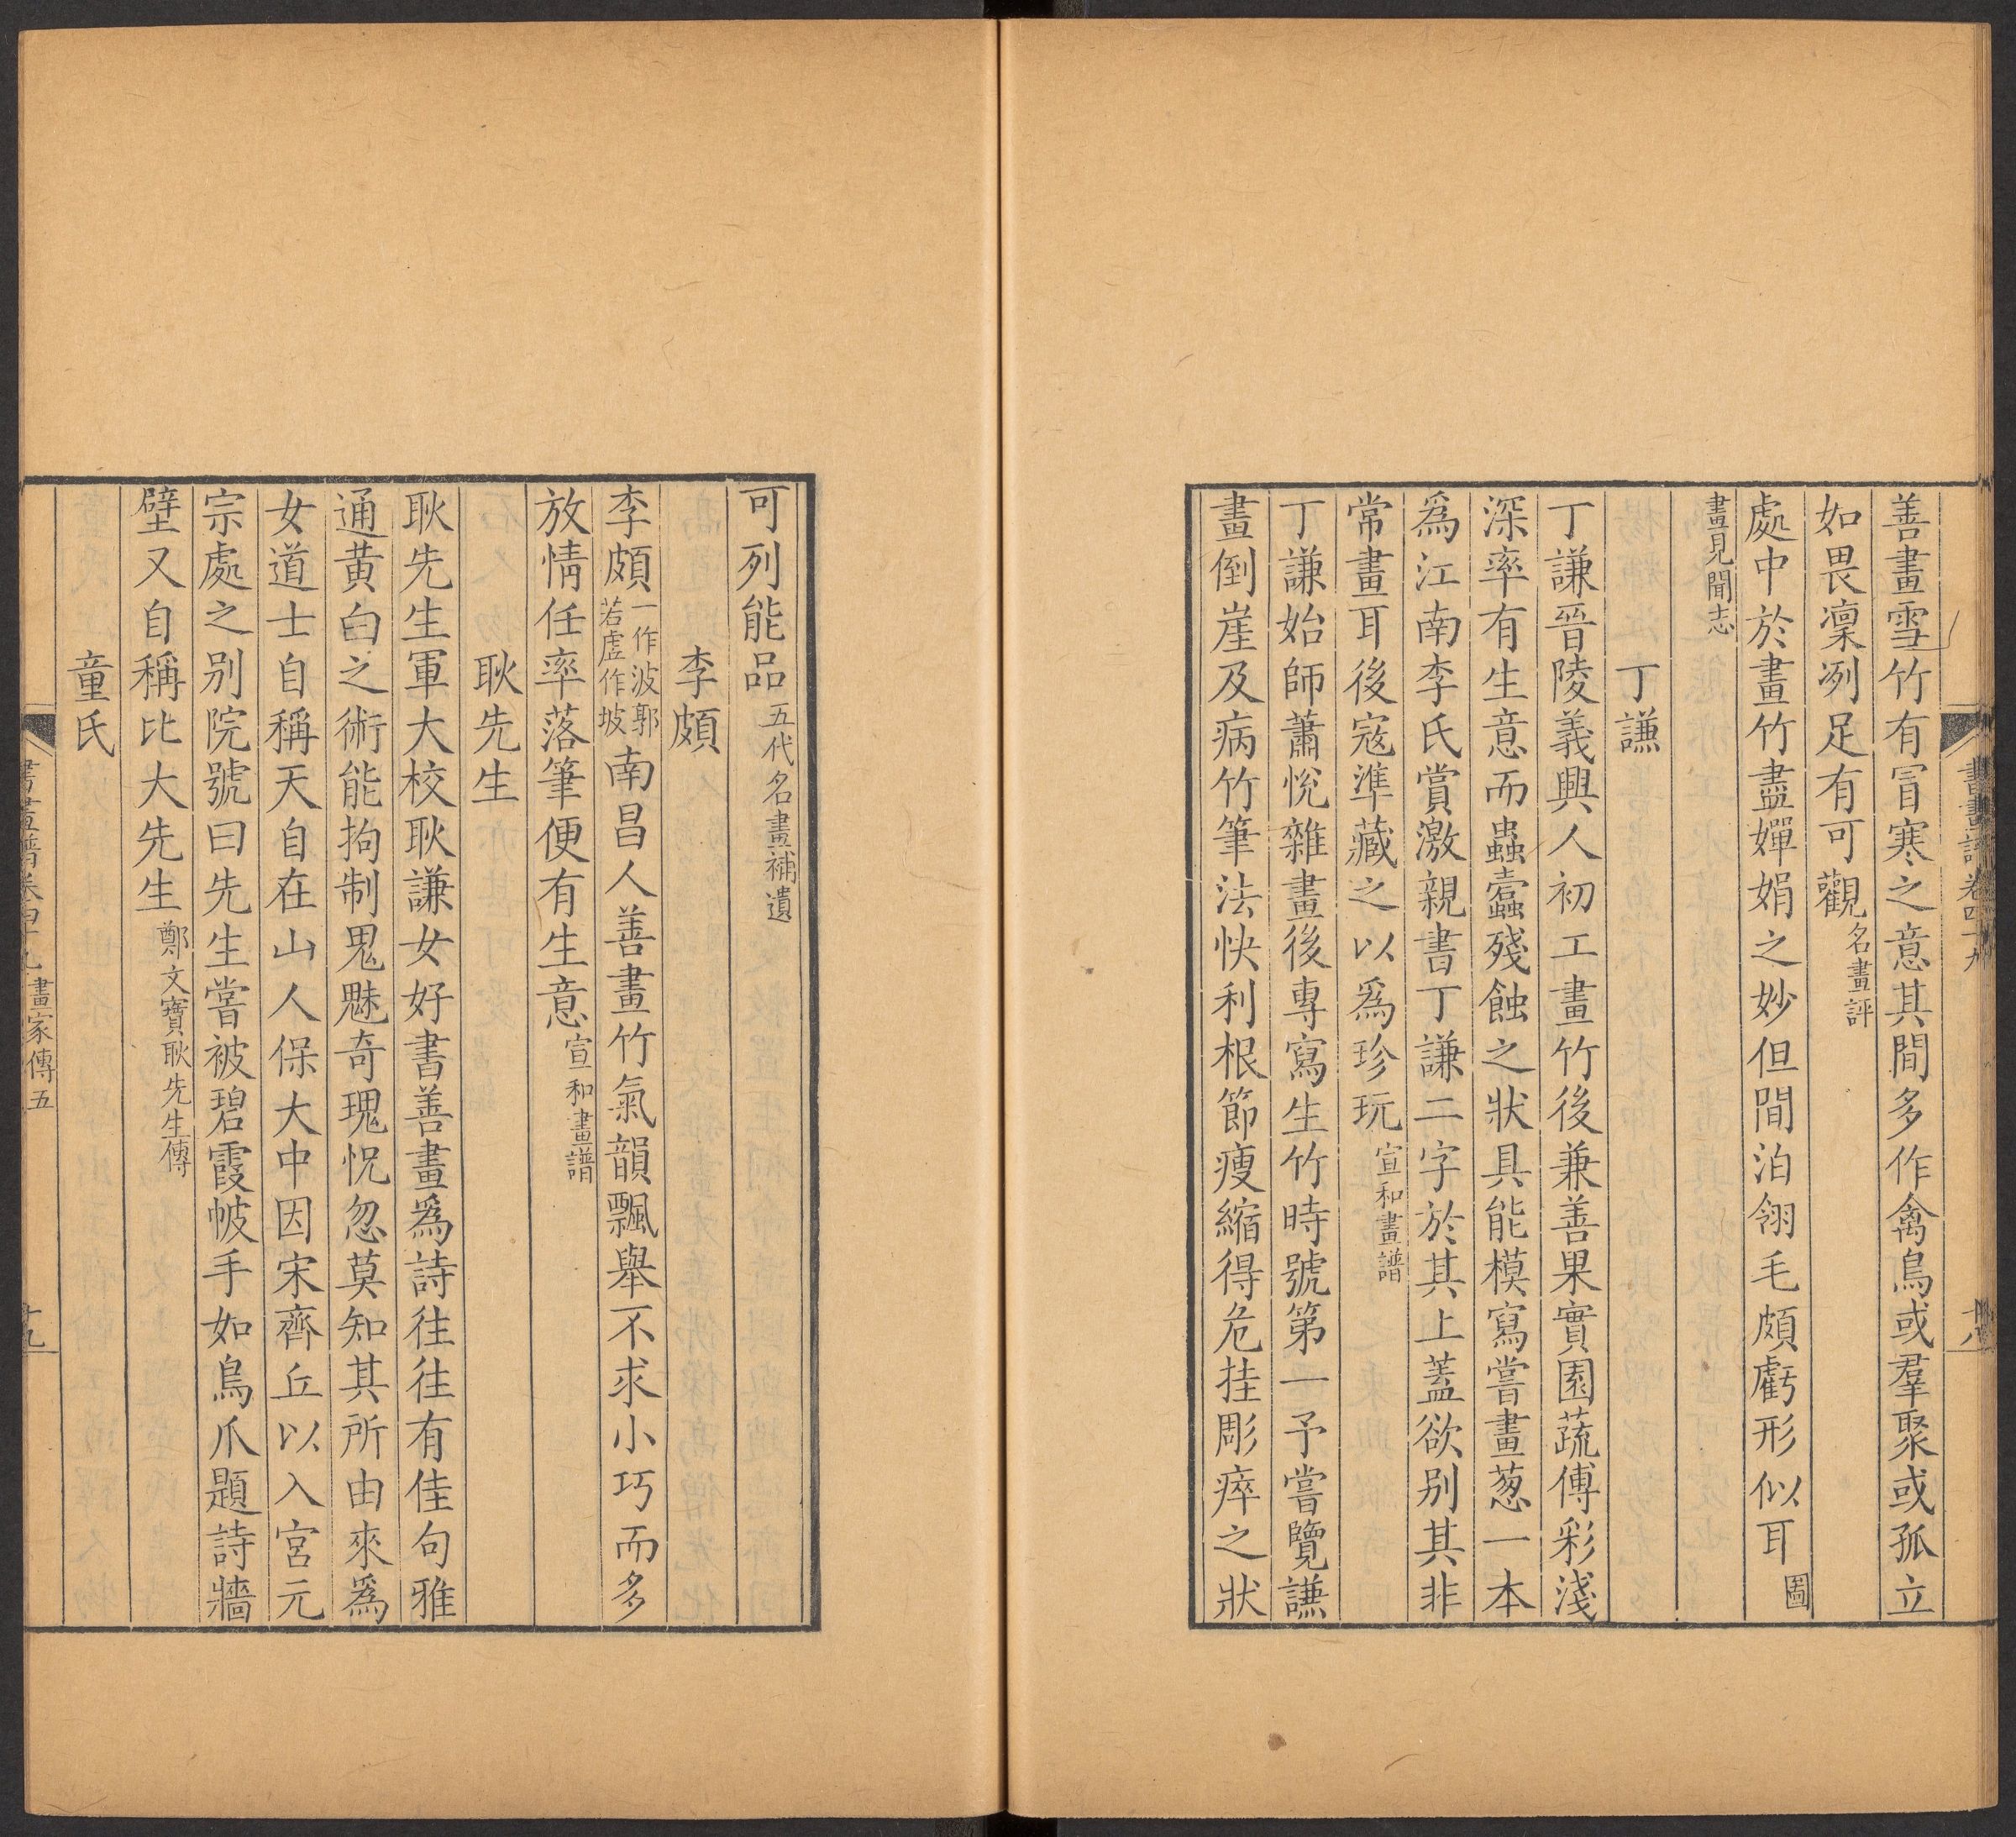 書畫譜卷四十九
十八
善畫雪竹有冒寒之意其間多作禽鳥或羣聚或孤立
如畏凜冽足有可觀名畫評
處中於畫竹盡嬋娟之妙但間泊翎毛頗虧形似耳圖
畫見聞志
丁謙
丁謙晉陵義興人初工畫竹後兼善果實園蔬傅彩淺
深率有生意而蟲蠧殘蝕之狀具能模寫嘗畫葱一本
爲江南李氏賞激親書丁謙二字於其上蓋欲别其非
常畫耳後寇準藏之以爲珍玩宣和畫譜
丁謙始師蕭悅雜畫後專寫生竹時號第一予嘗覽謙
畫倒崖及病竹筆法快利根節瘦縮得危挂彫瘁之狀
可列能品五代名畫補遺
李頗
李頗一作波郭若虛作坡南昌人善畫竹氣韻飄舉不求小巧而多
放情任率落筆便有生意宣和畫譜
耿先生
耿先生軍大校耿謙女好書善畫爲詩往往有佳句雅
通黄白之術能拘制鬼魅奇瑰怳忽莫知其所由來爲
女道士自稱天自在山人保大中因宋齊丘以入宮元
宗處之别院號曰先生嘗被碧霞帔手如鳥爪題詩牆
壁又自稱比大先生鄭文寶耿先生傳
童氏
書畫譜卷四十九 畫家傳五
十九